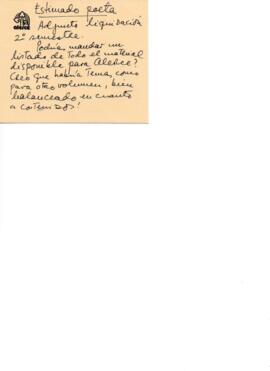 Estimado poeta
Adjunto liquidación
2º semestre.
Podría mandar un
listado de todo el material
disponible para Alerce?
Creo que habría tema, como
para otro volumen, bien
balanceado en cuanto
a contenidos!